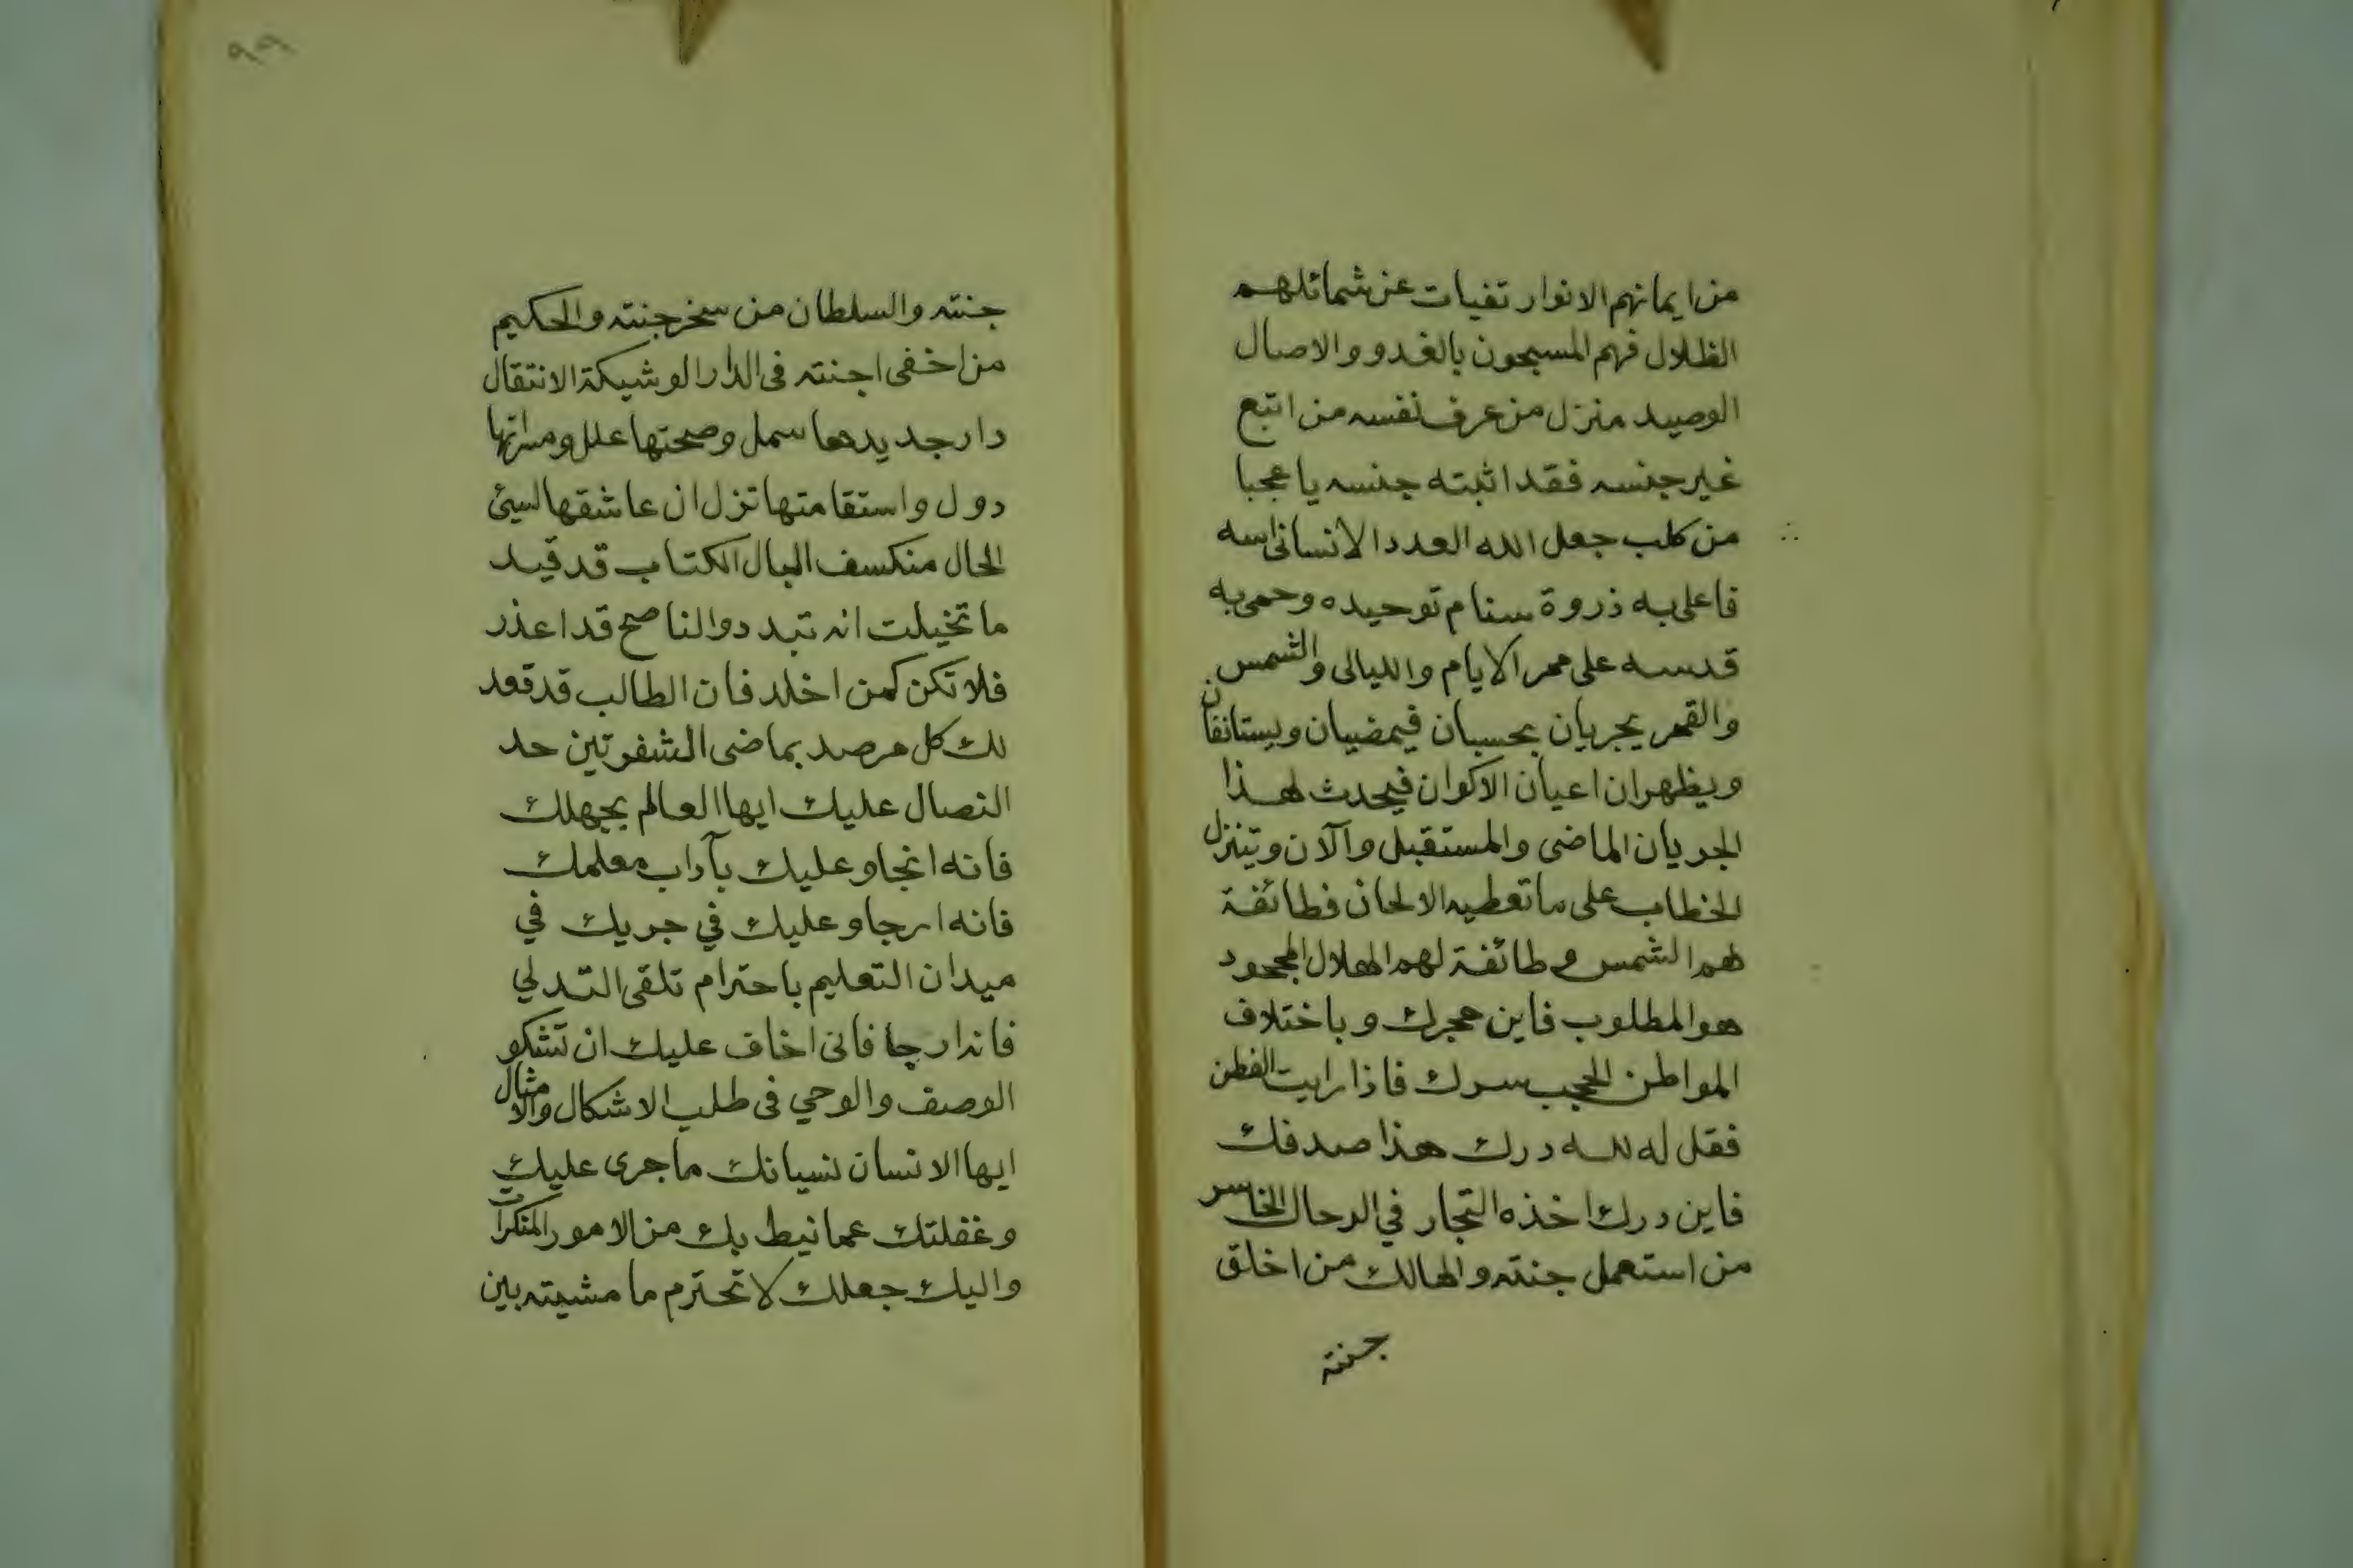 من ايمانهم الانوار تفيات عن شمائلهم
الظلال فهم المسبحون بالغدو والاصال
الوصيد منزل من عرف نفسه من اتبع
غير جنسه فقد اثبته جنسه يا عجبا
من كلب جعل الله العدد الانسانى اسه
فاعلى به ذروة سنام توحيده وحمى به
قدسه على ممر الايام والليالى والشمس
والقمر يجريان بحسبان فيمضيان ويستانفان
ويظهران اعيان الاكوان فيحدث لهذا
الجريان الماضى والمستقبل والآن ويتنزل
الخطاب على ما تعطيه الالحان فطائفة
لهم الشمس وطائفة لهم الهلال المجحود
هو المطلوب فاين حجرك وباختلاف
المواطن الحجب سرك فاذا رايت الفطن
فقل له لله درك هذا صدفك
فاين درك اخذه التجار في الرحال الخاسر
من استعمل جنته والهالك من اخلق
جنته
٩٩
جنته والسلطان من سخر جنته والحكيم
من اخفى اجنته فى الدار الوشيكة الانتقال
دار جديدها سمل وصحتها علل ومسراتها
دول واستقامتها تزل ان عاشقها لسيئ
الحال منكسف البال الكتاب قد قيد
ما تخيلت انه تبدد والناصح قد اعذر
فلا تكن كمن اخلد فان الطالب قد قعد
لك كل مرصد بماضى الشفرتين حد
النصال عليك ايها العالم بجهلك
فانه انجا وعليك بآداب معلمك
فانه ارجا وعليك في جريك في
ميدان التعليم باحترام تلقى التدلي
فاندارجا فانى اخاف عليك ان تشكو
الوصف والوحي فى طلب الاشكال والامثال
ايها الانسان نسيانك ما جرى عليك
وغفلتك عما نيط بك من الامور المنكرات
واليك جعلك لا تحترم ما مشيته بين